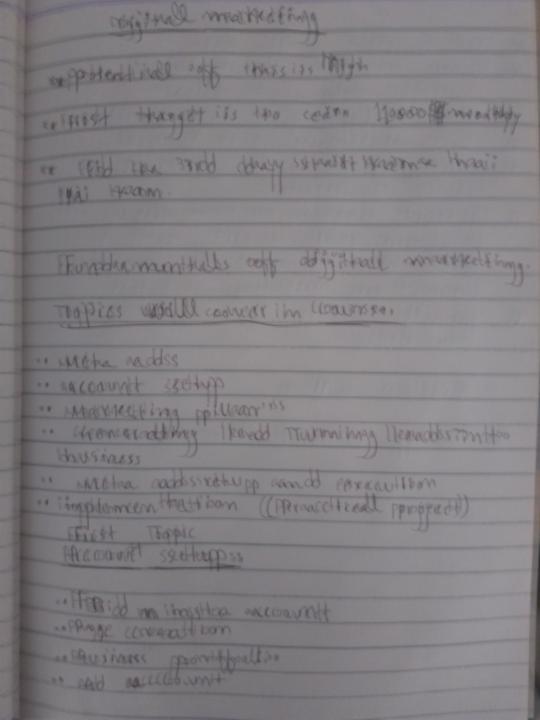 Digital marketing
Potential off this is high
First target is to earn 10000 monthly
3rd day se start karna hai
kaam.
Fundamentals off digital marketing.
Topics will cover in course.
Meta adds
account settup
Marketing
lead Turning leads into
business
Meta adds setupp and execution
implementation (Practical project)
First Topic
Account settups
insta account
Page creation
Business portfolio
Ad account